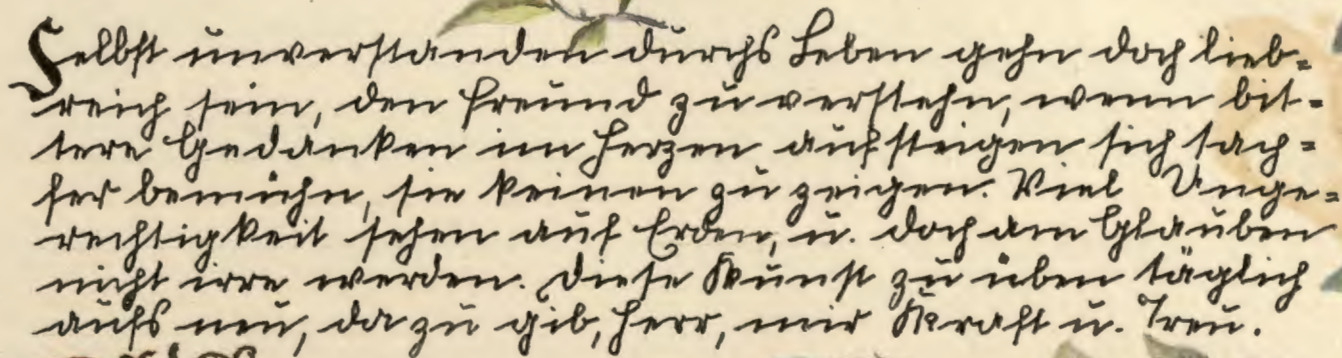 Selbst unverstanden durchs Leben gehn doch lieb=
reich sein, den Freund zu verstehn, wenn bit=
tere Gedanken im Herzen aufsteigen sich tap=
fer bemühn, sie keinen zu zeigen. Viel Unge=
rechtigkeit sehen auf Erden, u. doch am Glauben
nicht irre werden. Diese Kunst zu üben täglich
aufs neu, dazu gib, Herr, mir Kraft u. Treu.